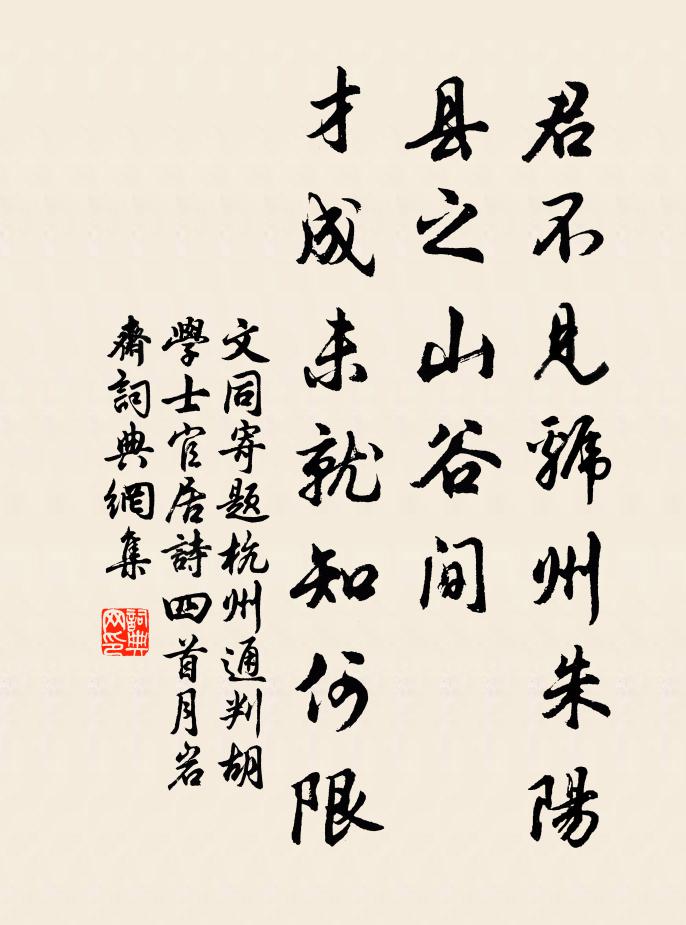 君不見虢州朱陽
县之山谷间
才成未就知何限
文同寄题杭州通判胡
學士官居詩四首月岩
齋詞典網集
詞典网印